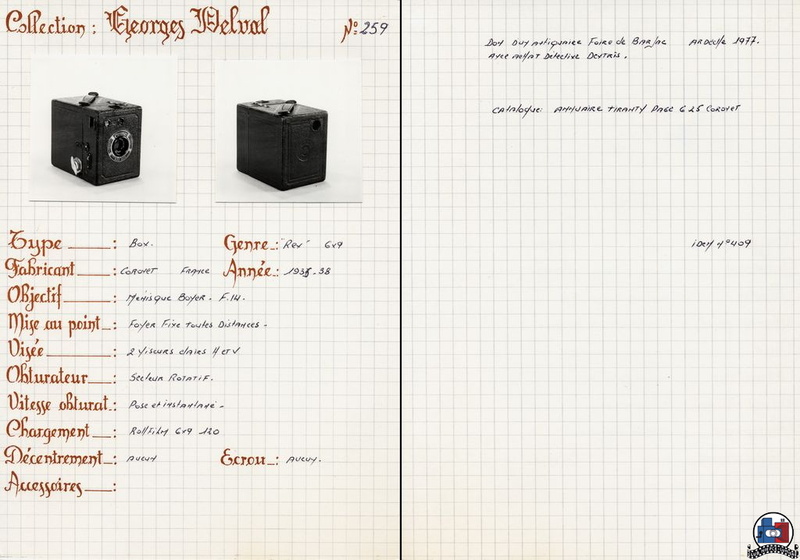 Collection : Georges Delval N°: 259
Type : Box.
Genre : "Rex" 6x9
Fabricant : CORONET FRANCE
Année : 1935.38
Objectif : Ménisque Boyer. F.14.
Mise au point : Foyer Fixe Toutes Distances.
Visée : 2 Viseurs clairs H et V
Obturateur : Secteur Rotatif.
Vitesse obturat. : Pose et instantané.
Chargement : Rollfilm 6x9 120
Décentrement : AUCUN
Ecrou : AUCUN.
Accessoires :
Don Duy Antiquaire Foire de Barjac ARDECHE 1977.
Avec Achat Detective DEXTRIS.
Catalogue: ANNUAIRE TIRANTY PAGE G 25 CORONET
iDEM N°409